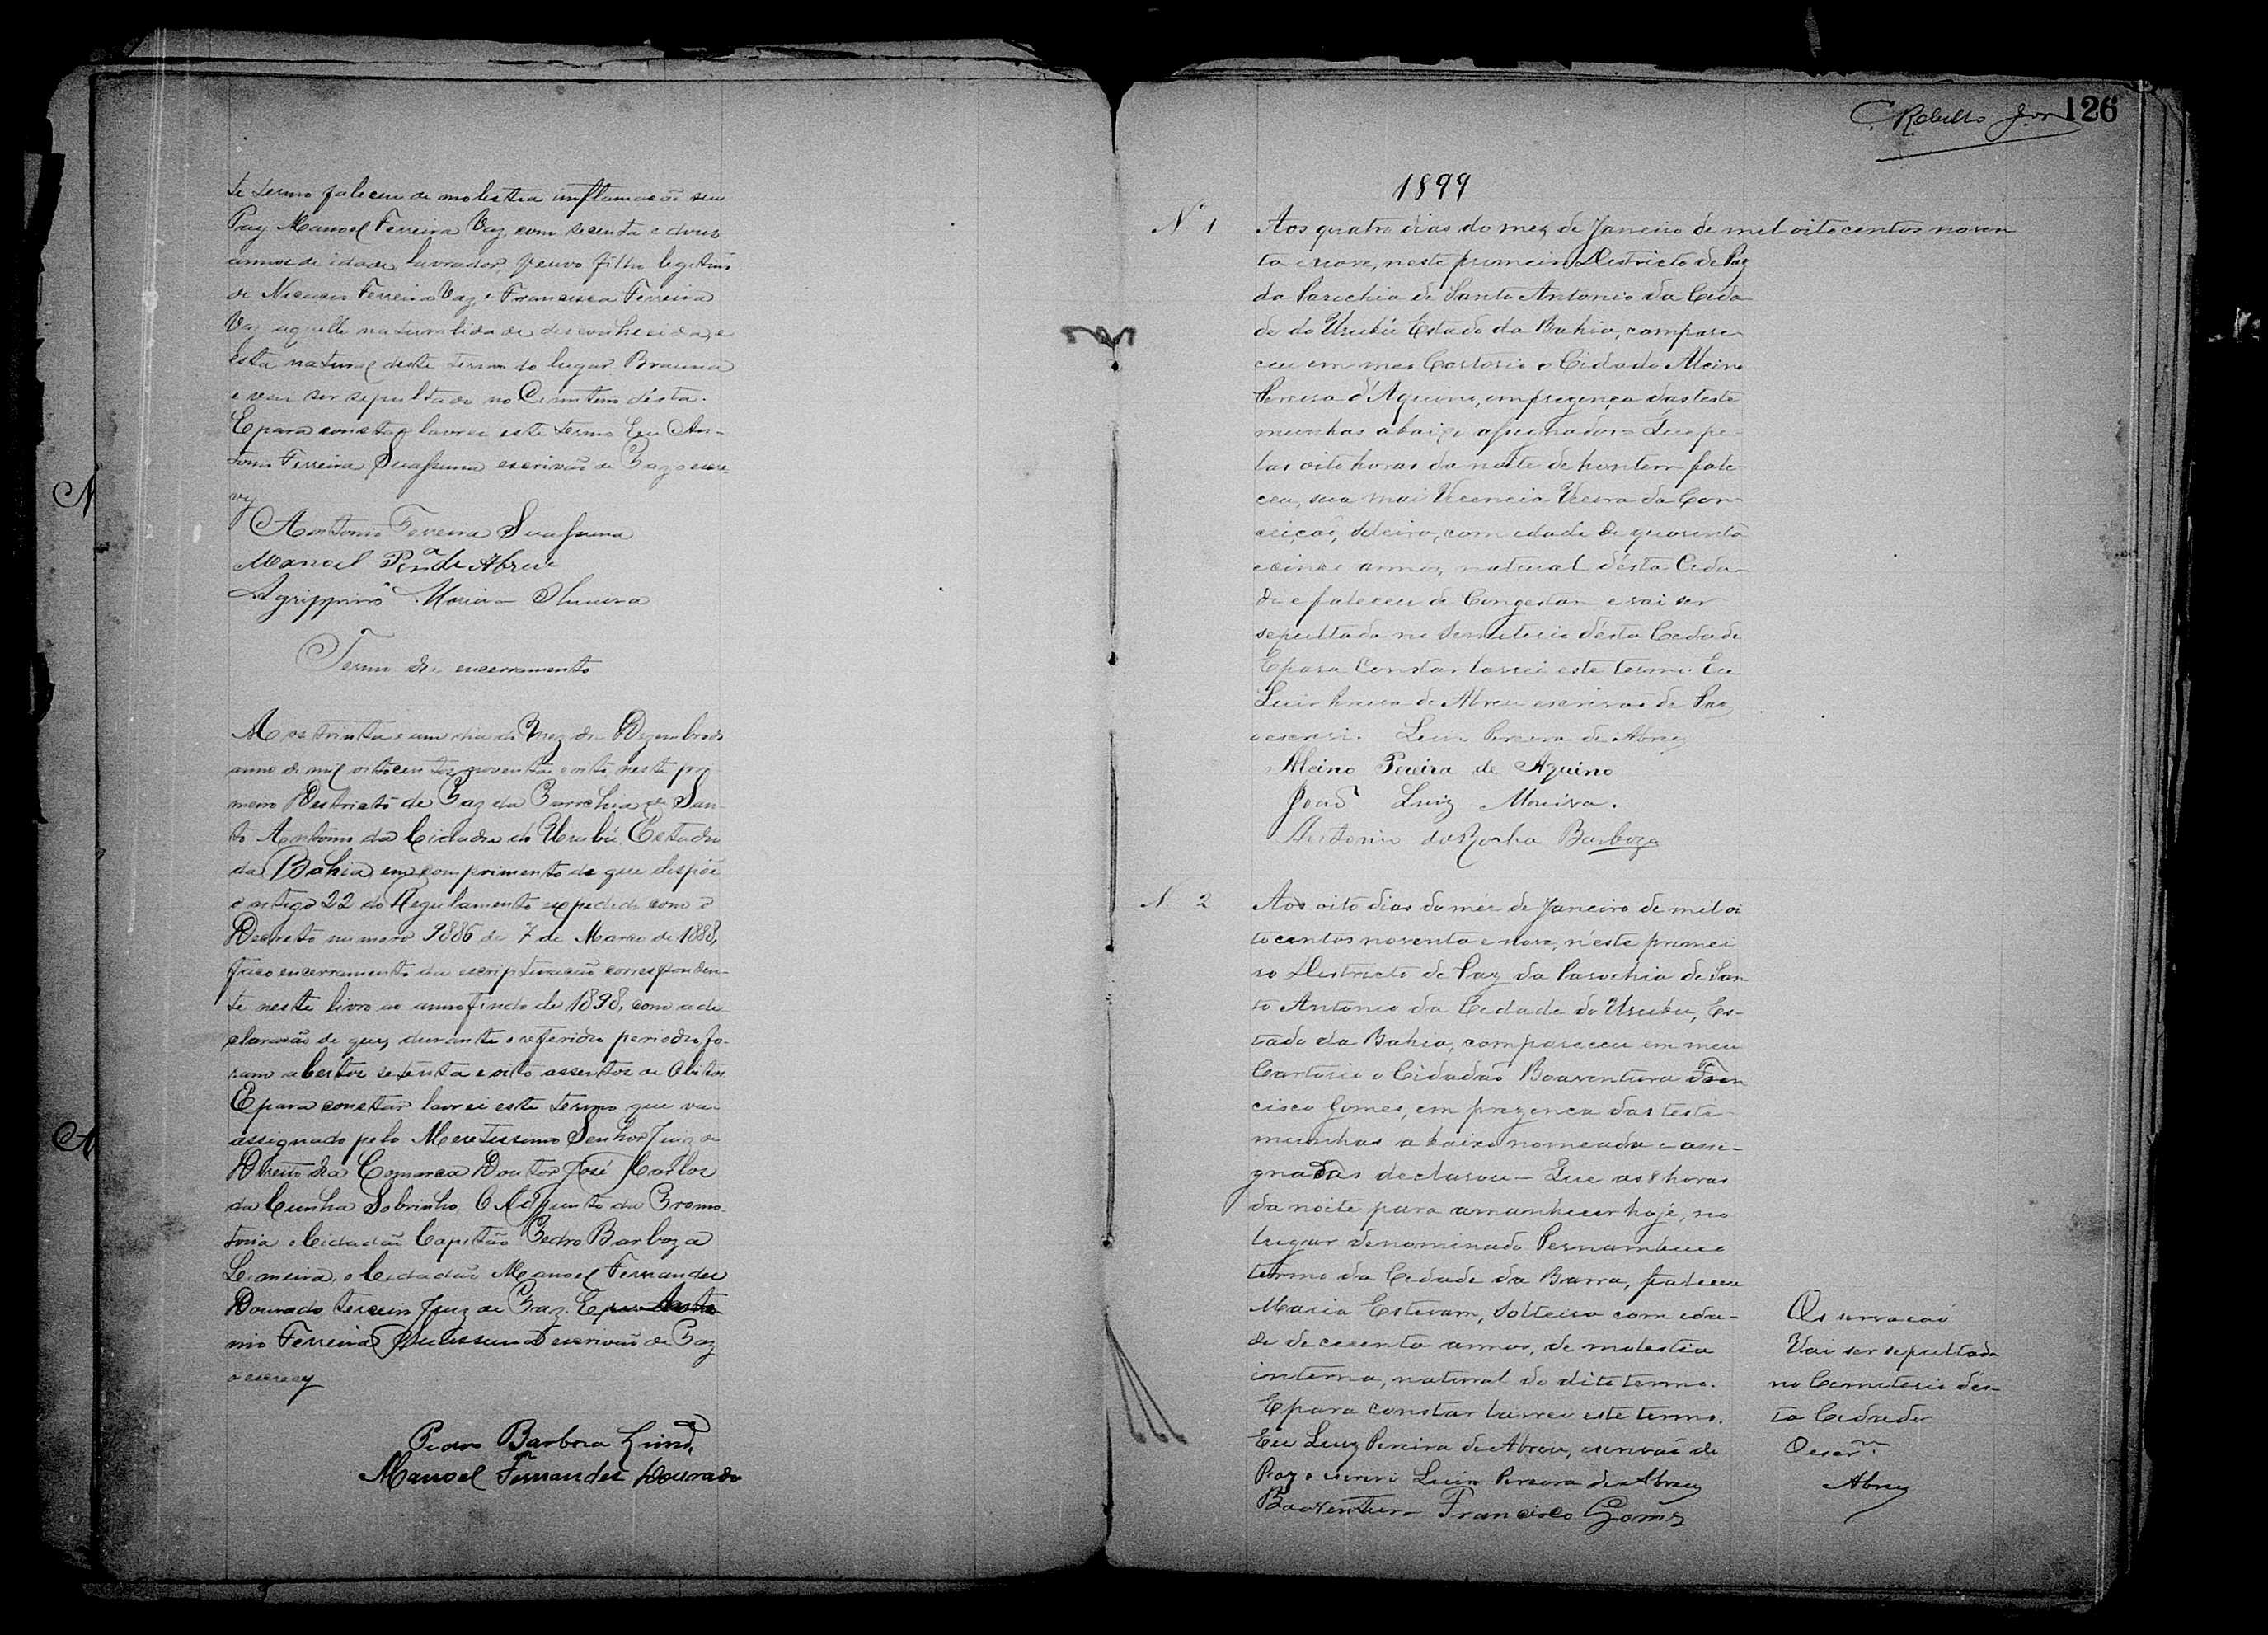 te termo faleceu de molestia inflamação seu
Pay Manoel Ferreira Vaz, com secenta e dous
annos de idade lavrador, veuvo filho legitimo
de Nicacio Ferreira Vaz e Francisca Ferreira
Vaz aquelle naturalidade desconhecida, e
esta natural deste termo do lugar Brauna
e vai ser sepultado no Cimiterio désta.
E para constar lavrei este termo Eu An-
tonio Ferreira Suassuna escrivão de Paz o escre
vy
Antonio Ferreira Suassuna
Manoel Perª de Abreu
Agrippino Moreira
Termo de encerramento
Aos trinta e um dia do Mez de Dezembro do
anno de mil oitocentos noventa e oito neste pri
meiro Destricto de Paz da Parrochia de San
to Antonio da Cidade do Urubú, Estado
da Bahia em comprimento do que dispõe
o artigo 22 do Regulamento expedido com o
Decreto numero 9886 de 7 de Março de 1888,
faço encerramento da escripturação corresponden-
te neste livro ao anno findo de 1898, com a de
claração de que, durante o referido periodo fo-
ram abertos setenta e oito assentos de Obitos
E para constar lavrei este termo que vai
assignado pelo Meretissimo Senhor Juiz de
Direito da Comarca Doutor José Carlos
da Cunha Sobrinho, O Adjunto da Promo
toria o Cidadão Capitão Pedro Barboza
o Cidadão Manoel Fernandes
Dourado terceiro Juiz de Paz. Eu Anto
nio Ferreira Suassuna escrivão de Paz
o escrevy
Pedro Barboza
Manoel Fernandes Dourado
C. Rebello Jor 126
1899
Nº 1
Aos quatro dias do mez de Janeiro de mil oitocentos noven
ta e nove, neste primeiro Destricto de Paz
da Parochia de Santo Antonio da Cida
de do Urubú Estado da Bahia, compare
ceu em meu Cartorio o Cidadão Alcino
Pereira d'Aquino, em prezença das teste
munhas abaixo assignados - Que pe
las oito horas da noite de hontem fale
ceu, sua mai Vicencia Vieira da Con
ceição, solteira, com idade de quarenta
e cinco annos, natural désta Cida
de e faleceu de Congestam e vai ser
sepultada no Semiterio désta Cidade
E para Constar lavrei este termo. Eu
Luiz Pereira de Abreu escrivão de Paz
o escrevi. Luiz Pereira de Abreu
Alcino Pereira de Aquino
João Luiz Moreira.
Antonio da Rocha Barboza
N 2
Aos oito dias do méz de Janeiro de mil oi
tocentos noventa e nove, n'este primei
ro Destricto de Paz da Parochia de San
to Antonio da Cidade do Urubu, Es-
tado da Bahia, compareceu em meu
Cartorio o Cidadão Boaventura Fran
cisco Gomes, em prezenca das teste
munhas abaixo nomeada e assi-
gnadas declarou - Que as 8 horas
da noite para amanhecer hoje, no
lugar denominado Pernambuco
termo da Cidade da Barra, faleceu
Maria Estevam, Solteira com ida-
de de cecenta annos, de molestia
interna, natural do dito termo.
E para constar lavrei este termo.
Eu Luiz Pereira de Abreu, escrivão de
Paz o escrevi Luiz Pereira de Abreu
Boaventura Francisco Gomes
Observação
Vai ser sepultada
no Cemiterio des-
ta Cidade
O escrm
Abreu